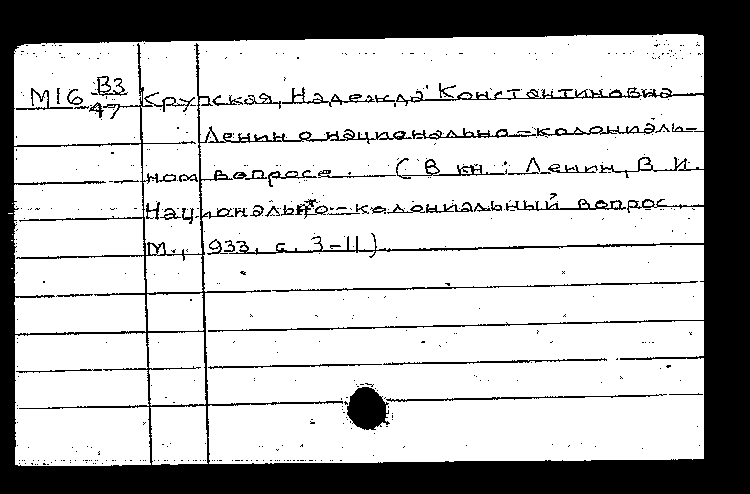 М16 В3/47 Крупская, Надежда Константиновна
Ленин о национально-колониаль-
ном вопросе. (В кн.: Ленин, В.И.
Национально-колониальный вопрос.
М., 1933, с. 3-11).